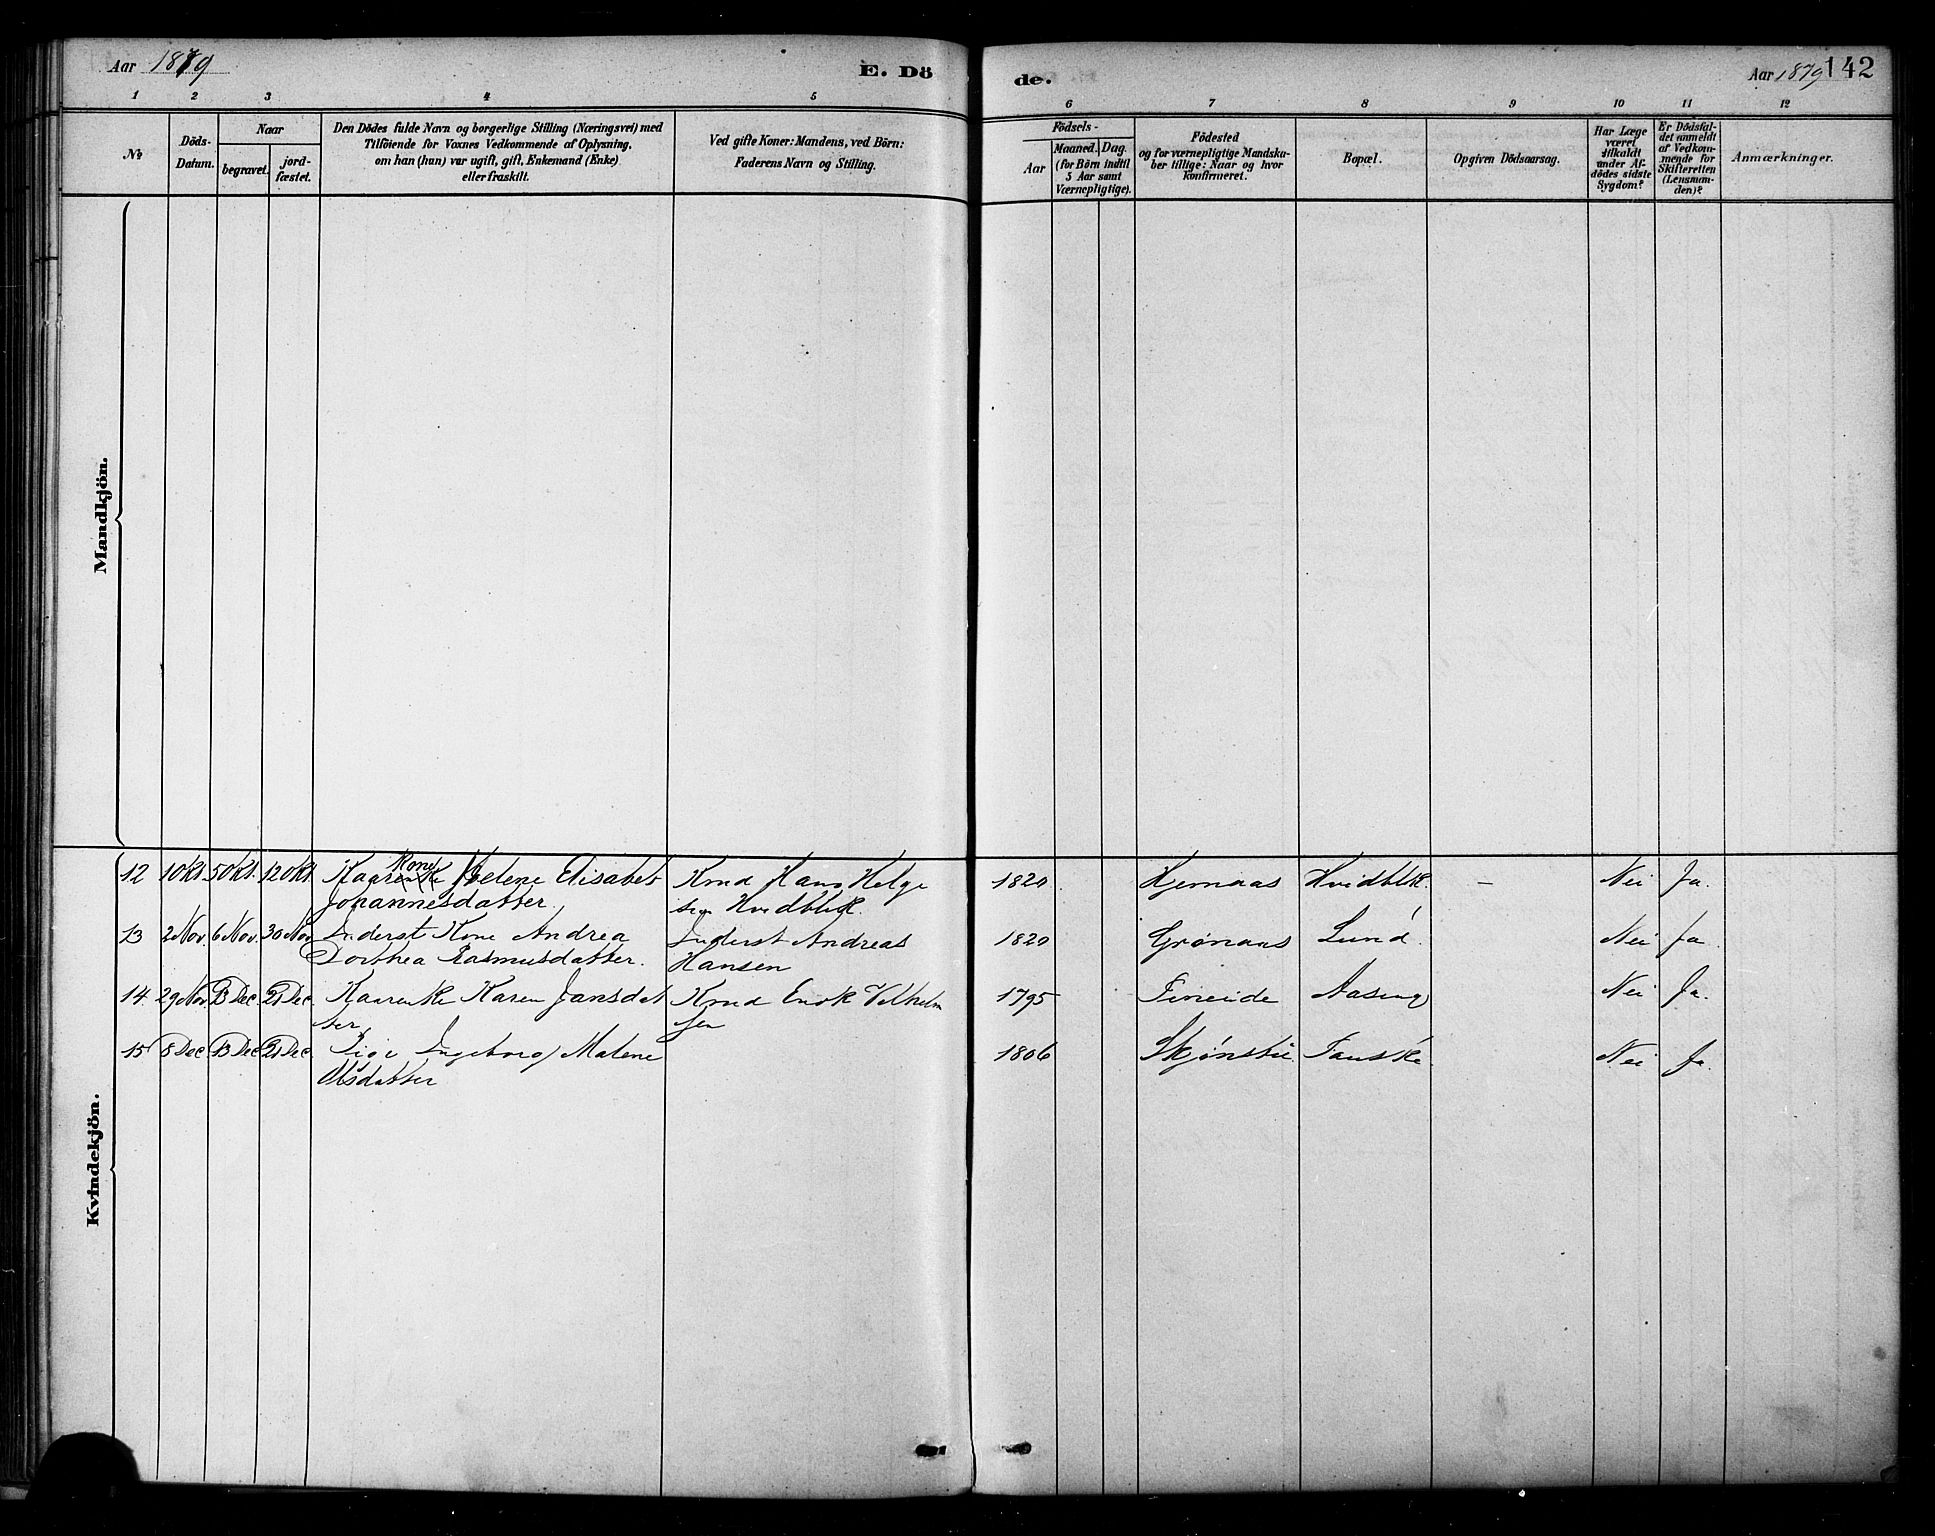 Aar 1879
E. Dö
de.
Aar 1879 142
1 2 3 4 5 6 7 8 9 10 11 12
No
Döds-
Datum.
Naar
begravet.
jord-
fæstet.
Den Dödes fulde Navn og borgerlige Stilling (Næringsvei) med
Tilföiende for Voxnes Vedkommende af Oplysning,
om han (hun) var ugift, gift, Enkemand (Enke)
eller fraskilt.
Ved gifte Koner: Mandens, ved Börn:
Faderens Navn og Stilling.
Födsels-
Aar
Maaned. Dag.
(for Börn indtil
5 Aar samt
Værnepligtige).
Födested
og for værnepligtige Mandska-
ber tillige: Naar og hvor
konfirmeret.
Bopæl.
Opgiven Dödsaarsag.
Har Læge
været
tilkaldt
under Af-
dödes sidste
Sygdom?
Er Dödsfal-
det anmeldt
af Vedkom-
mende for
Skifteretten
(Lensman-
den)?
Anmærkninger.
Mandkjön.
Kvindekjön.
12 1 Okt. 5 Okt. 12 Okt. Kaarenke Kone Helene Elisabet Kmd Hans Helge 1820 Hjemaas Hvidblik. – Nei Ja.
Johannesdatter. sen Hvidblik.
13 2 Nov. 6 Nov. 30 Nov Inderst Kone Andrea Inderst Andreas 1820 Grønaas Lund. Nei Ja
Dorthea Rasmusdatter. Hansen
14. 29 Nov. 13 Dec. 21 Dec. Kaarenke Karen Jansdat Kmd Enok Vilhelm 1795 Fineide Aasing Nei Ja.
ter, sen
15 8 Dec. 13 Dec. 21 Dec. Pige Ingeborg Malene 1806 Skjønstu Fauske. Nei Ja.
Olsdatter